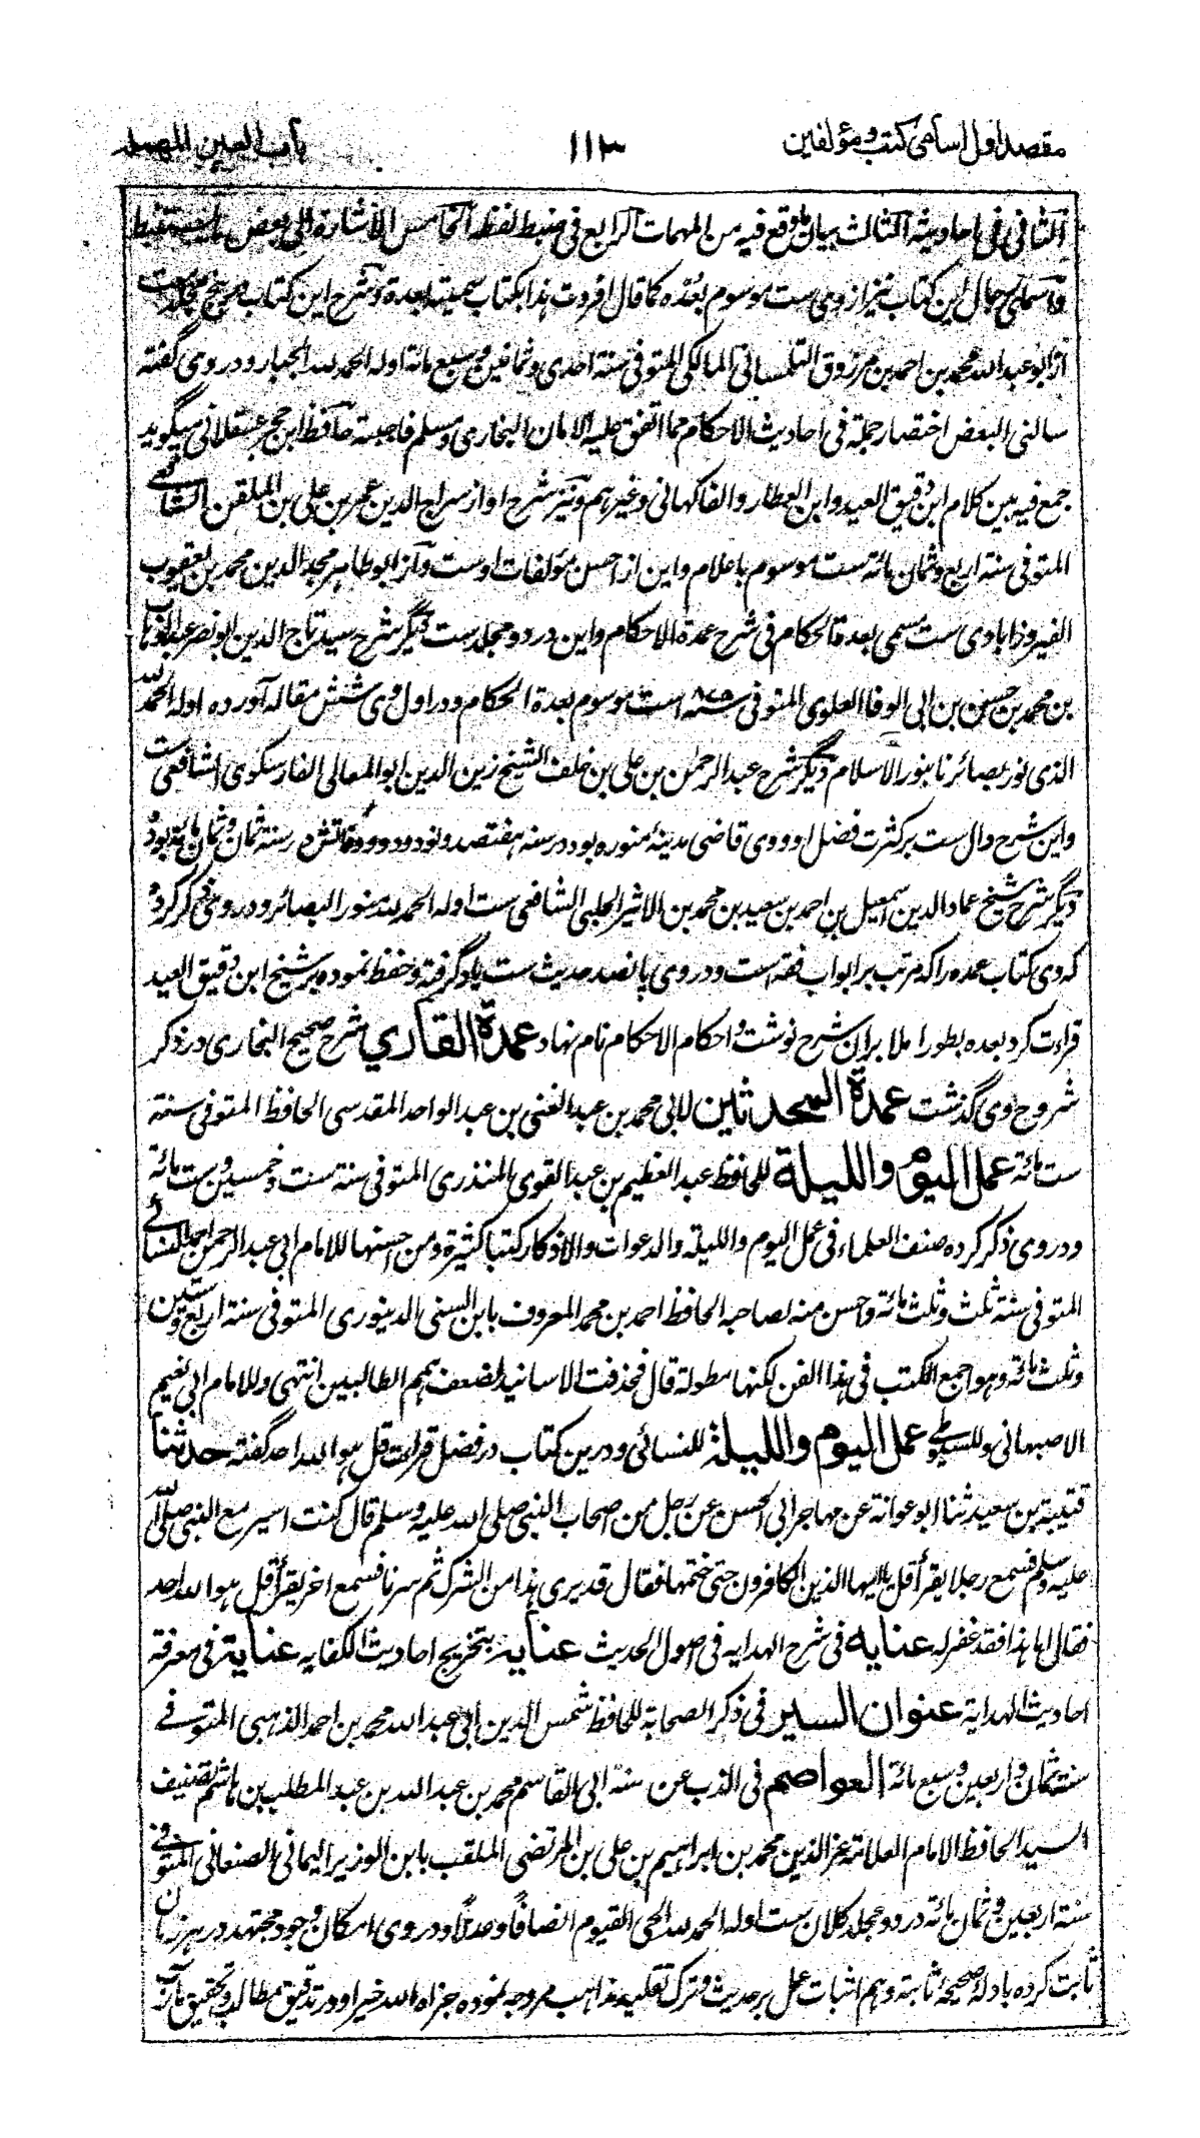 مقصد اول اسامی کتب و مؤلفین ۱۱۳ باب العین المهملة
الثانی فی احادیثه الثالث بیان ما وقع فیه من المهمات الرابع فی ضبط لفظه الخامس الاشارة الی بعض ما یستنبط
و اسمای رجال این کتاب نیز از وی ست موسوم بعده کما قال افردت هذا بکتاب سمیته العدة و شرح این کتاب در پنج مجلد ست
از ابو عبد الله محمد بن احمد بن مرزوق التلمسانی المالکی المتوفی سنة احدی و ثمانین و سبع مائة اوله الحمد لله الجبار و در وی گفته
سالنی البعض اختصار جملة فی احادیث الاحکام مما اتفق علیه الامامان البخاری و مسلم فاجبته حافظ ابن حجر عسقلانی میگوید
جمع فیه بین کلام ابن دقیق العید و ابن العطار و الفاکهانی و غیرهم و نیز شرح او از سراج الدین عمر بن علی بن الملقن الشافعی
المتوفی سنة اربع و ثمان مائة ست موسوم باعلام و این از احسن مؤلفات اوست و از ابو طاهر مجد الدین محمد بن یعقوب
الفیروزابادی ست مسمی بعدة الحکام فی شرح عمدة الاحکام و این در دو مجلد ست دیگر شرح سید تاج الدین ابو نصر عبد الوهاب
بن محمد بن حسن بن ابی الوفا العلوی المتوفی سنه ۸۷۵ است موسوم بعدة الحکام و در اول وی شش مقاله آورده اوله الحمد لله
الذی نور بصائرنا بنور الاسلام دیگر شرح عبد الرحمن بن علی بن خلف الشیخ زین الدین ابو المعالی الفارسکوی الشافعی ست
و این شرح دال ست بر کثرت فضل او و وی قاضی مدینهٔ منوره بود در سنه هفتصد و نود و دو و وفاتش در سنة ثمان و ثمان مائة بود
دیگر شرح شیخ عماد الدین اسمعیل بن احمد بن سعید بن محمد بن الاثیر الحلبی الشافعی ست اوله الحمد لله منور البصائر و در وی ذکر کرده
که وی کتاب عمده را که مرتب بر ابواب فقه است و در وی پانصد حدیث ست یاد گرفته و حفظ نموده بر شیخ ابن دقیق العید
قراءت کرد بعده بطور املا بر ان شرح نوشت و احکام الاحکام نام نهاد عمدة القاری شرح صحیح البخاری در ذکر
شروح وی گذشت عمدة المحدثین لابی محمد بن عبد الغنی بن عبد الواحد المقدسی الحافظ المتوفی سنة
ست مائة عمل الیوم و اللیلة للحافظ عبد العظیم بن عبد القوی المنذری المتوفی سنة ست و خمسین و ست مائة
و در وی ذکر کرده صنف العلماء فی عمل الیوم و اللیلة و الدعوات و الاذکار کتبا کثیرة و من احسنها للامام ابی عبد الرحمن احمد النسائی
المتوفی سنة ثلث و ثلث مائة و احسن منه لصاحبه الحافظ احمد بن محمد المعروف بابن السنی الدینوری المتوفی سنة اربع و ستین
و ثلث مائة و هو اجمع الکتب فی هذا الفن لکنها مطولة قال فحذفت الاسانید لضعف همم الطالبین انتهی و للامام ابی نعیم
الاصبهانی و للسیوطی عمل الیوم و اللیلة للنسائی و درین کتاب در فضل قراءت قل هو الله احد گفته حدثنا
قتیبة بن سعید ثنا ابو عوانة عن مهاجر ابی الحسن عن رجل من صحاب النبی صلی الله علیه و سلم قال کنت اسیر مع النبی صلی الله
علیه و سلم فسمع رجلا یقرأ قل یا ایها الذین الکافرون حتی ختمها فقال قد بری هذا من الشرک ثم سرنا فسمع اخر یقرأ قل هو الله احد
فقال اما هذا فقد غفر له عنایه فی شرح الهدایه فی اصول الحدیث عنایه بتخریج احادیث الکفایه عنایة فی معرفة
احادیث الهدایة عنوان السیر فی ذکر الصحابة للحافظ شمس الدین ابی عبد الله محمد بن احمد الذهبی المتوفی
سنة ثمان و اربعین و سبع مائة العواصم فی الذب عن سنة ابی القاسم محمد بن عبد الله بن عبد المطلب بن هاشم تصنیف
السید الحافظ الامام العلامة عز الدین محمد بن ابراهیم بن علی بن المرتضی الملقب بابن الوزیر الیمانی الصنعانی المتوفی
سنة اربعین و ثمان مائة در دو مجلد کلان ست اوله الحمد لله الحی القیوم انصافًا و عدلًا و در وی امکان وجود مجتهد در هر زمان
ثابت کرده بادلهٔ صحیحهٔ ثابته و هم اثبات عمل بر حدیث و ترک تقلید مذاهب مروجه نموده جزاه الله خیرا و در تدقیق مطالب و تحقیق مآرب